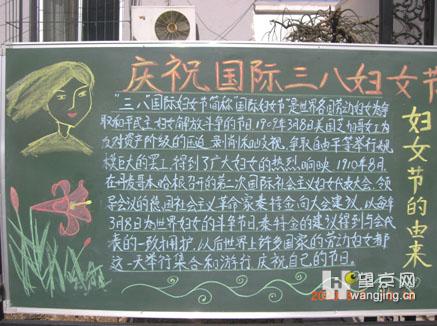 庆祝国际三八妇女节
"三八"国际妇女节简称"国际妇女节"是世界各国劳动妇女为争
取和平民主妇女解放斗争的节日.1909年3月8日美国芝加哥女工为
反对资产阶级的压迫、剥削和歧视,争取自由平等举行规
模巨大的罢工,得到了广大妇女的热烈响映.1910年8月,
在丹麦哥本哈根召开的第二次国际社会主义妇女代表大会,领
导会议的德国社会主义革命家泰特金向大会建议,以每年
3月8日为世界妇女的斗争节日.泰特金的建议得到与会代
表的一致拥护,从后世界上许多国家的劳动妇女都
这一天举行集合和游行 庆祝自己的节日。
妇女节的由来
望京网
wangjing.cn